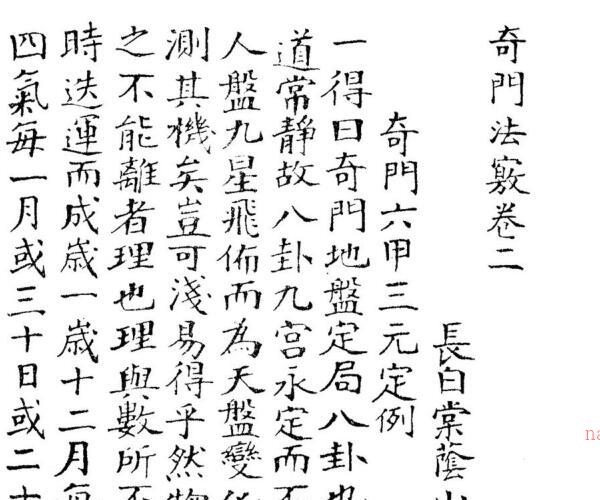 奇門法竅卷二
長白棠蔭
奇門六甲三元定例
一得曰奇門地盤定局八卦也
道常靜故八卦九宮永定而不
人盤九星飛佈而為天盤變
測其機矣豈可淺易得乎然物
之不能離者理也理與數所不
時迭運而成歲一歲十二月每
四氣每一月或三十日或二十
na